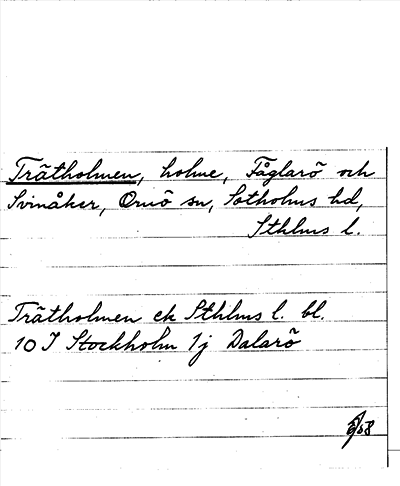 Trätholmen, holme, Fåglarö och
Svinåker, Ornö sn, Sotholms hd,
Sthlms l.
Trätholmen ek Sthlms l. bl.
10 I Stockholm 1j Dalarö